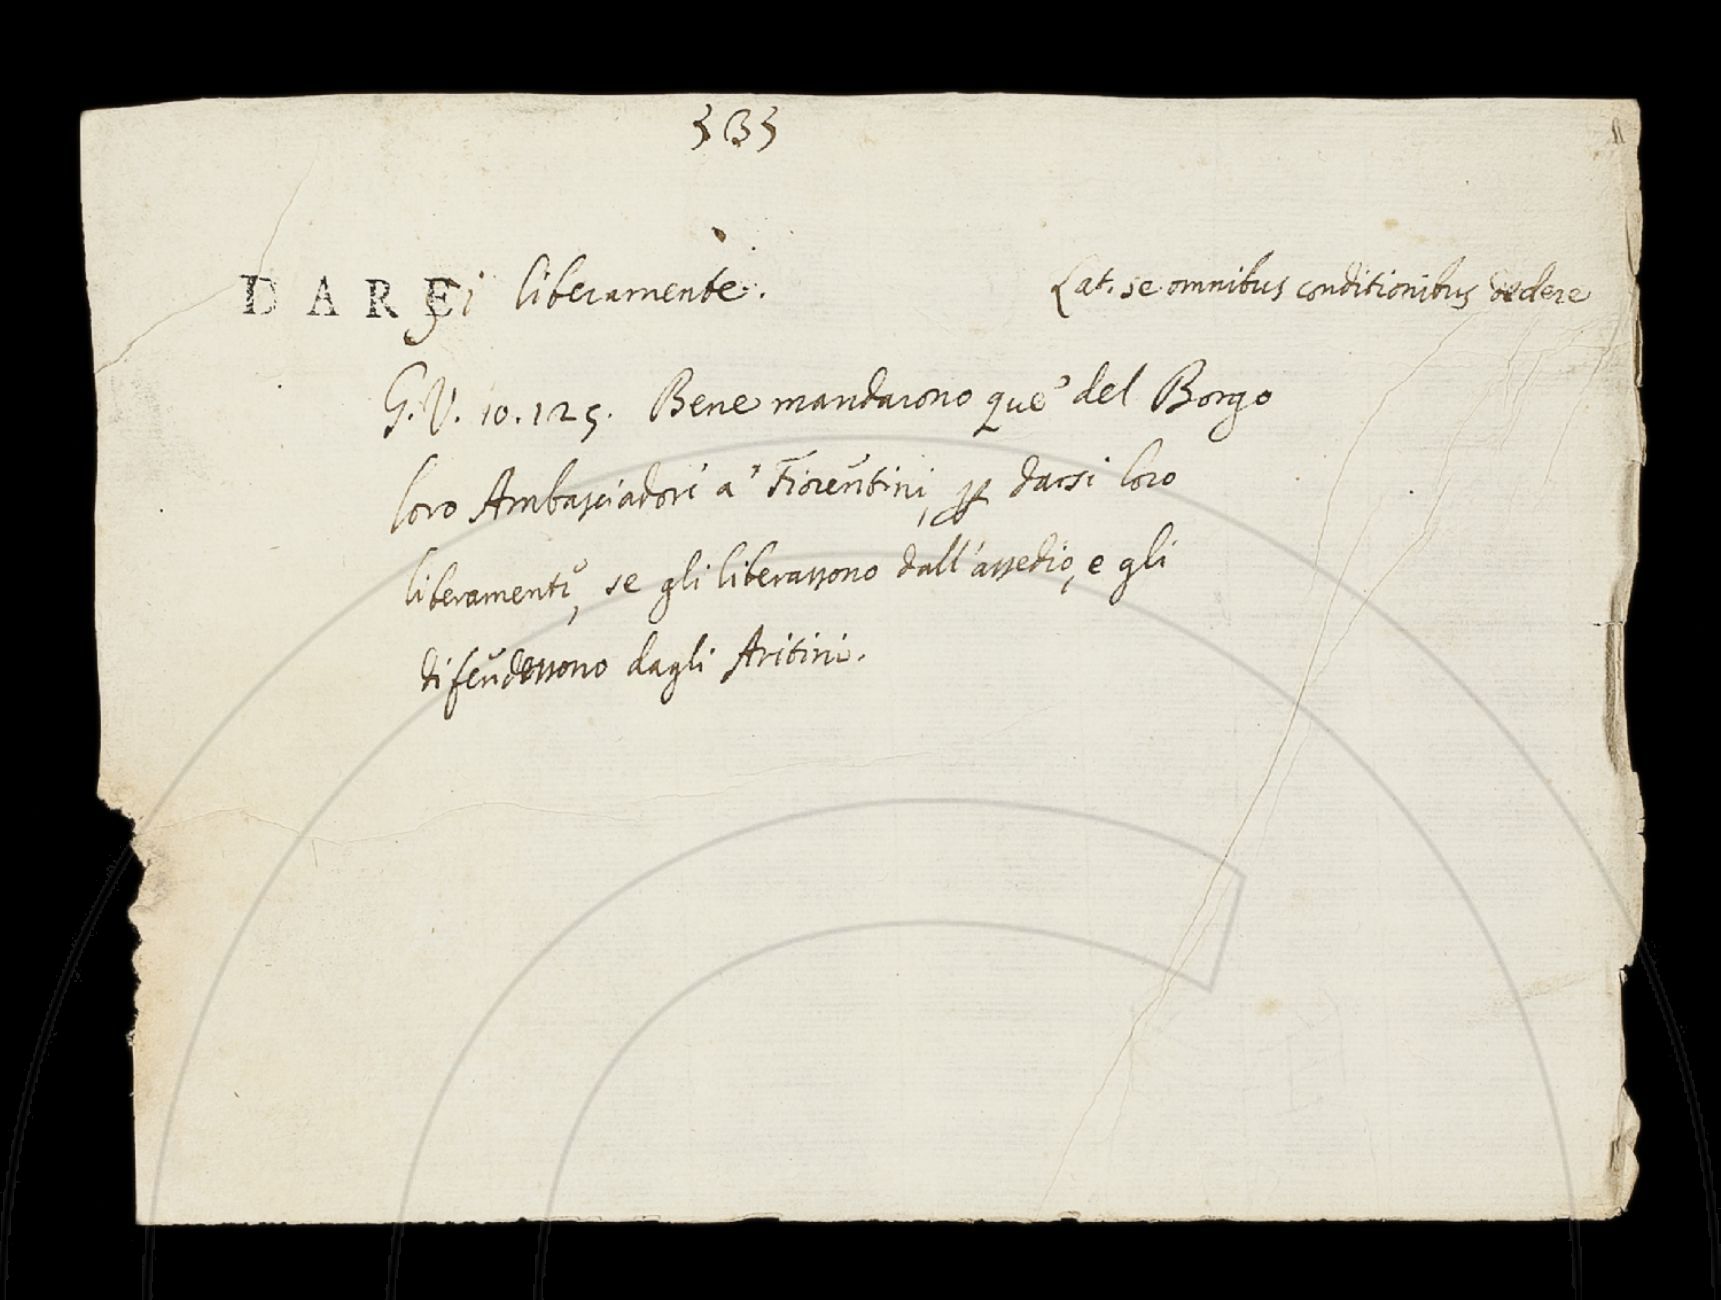 333
DARsi liberamente.
Lat. se omnibus conditionibus dedere
G.V. 10.125. Bene mandarono que' del Borgo
loro Ambasciadori a' Fiorentini, ꝑ darsi loro
liberamente, se gli liberassono dall'assedio, e gli
difendessono dagli Aritini.